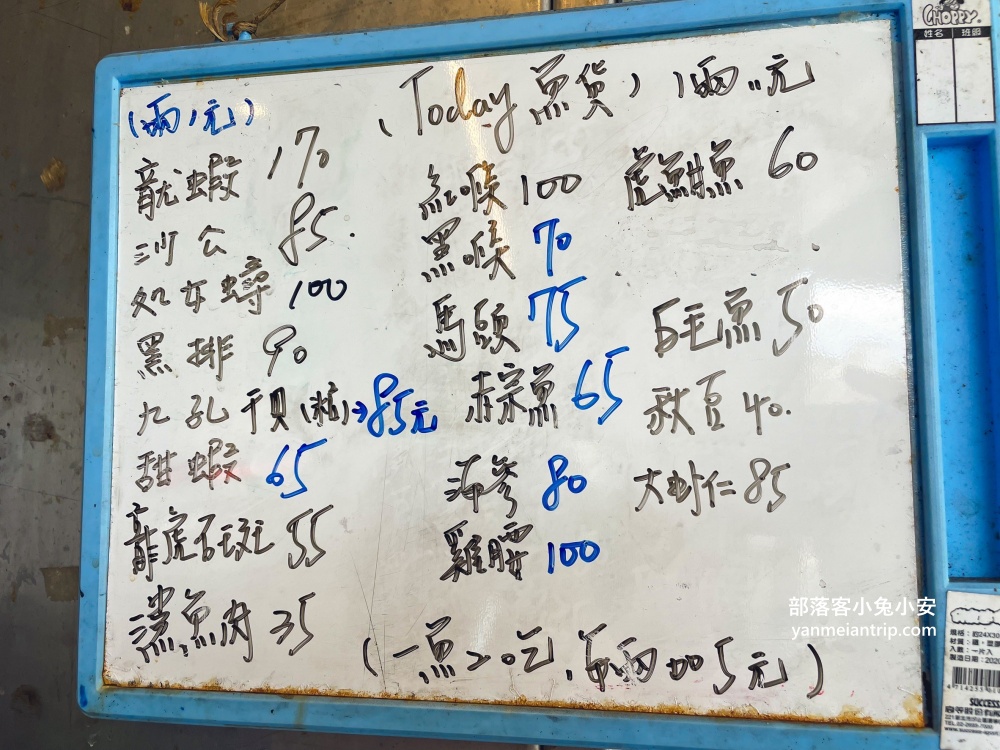 (兩/元)
(Today魚貨) 1兩..元
龍蝦 170
沙公 85.
処女蟳 100
黑排 90
九孔干貝(粒)→85元
甜蝦 65
龍虎石斑 55
鯊魚肉 35
紅喉 100
黑喉 70
馬頭 75
赤宗魚 65
海參 80
雞腰 100
虎魚 60
石毛魚 50
秋豆 40.
大虾仁 85
(一魚2吃,每兩加5元)
CHOPPY
姓名 班級
部落客小兔小安
yanmeiantrip.com
規格:約24X3
入數:一片入
SUCCESS